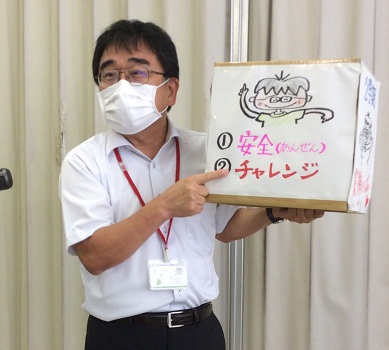 ①安全(あんぜん)
②チャレンジ